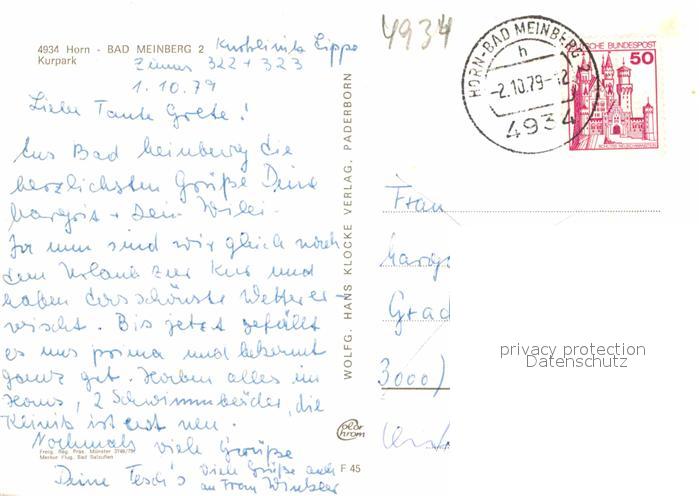 4934 Horn - BAD MEINBERG 2 Kurklinik Lippe
Kurpark Zimmer 322 + 323
1.10.79
Liebe Tante Grete!
Aus Bad Meinberg die
herzlichsten Grüße Deine
Margrit + Dein Willi.
Ja nun sind wir gleich nach
dem Urlaub zur Kur und
haben das schönste Wetter er-
wischt. Bis jetzt gefällt
es uns prima und bekommt
ganz gut. Haben alles im
Haus, 2 Schwimmbäder, die
Klinik ist erst neu.
Nochmals viele Grüße
Freig. Reg. Präs. Münster
Merkur Flug, Bad Salzuflen
Deine Tesch's Viele Grüße auch
an Frau Winkler
WOLFG. HANS KLOCKE VERLAG, PADERBORN
color chrom
F 45
4934
HORN-BAD MEINBERG 2
h
-2.10.79-12
4934
DEUTSCHE BUNDESPOST
50
Frau
Grad
3000
privacy protection
Datenschutz